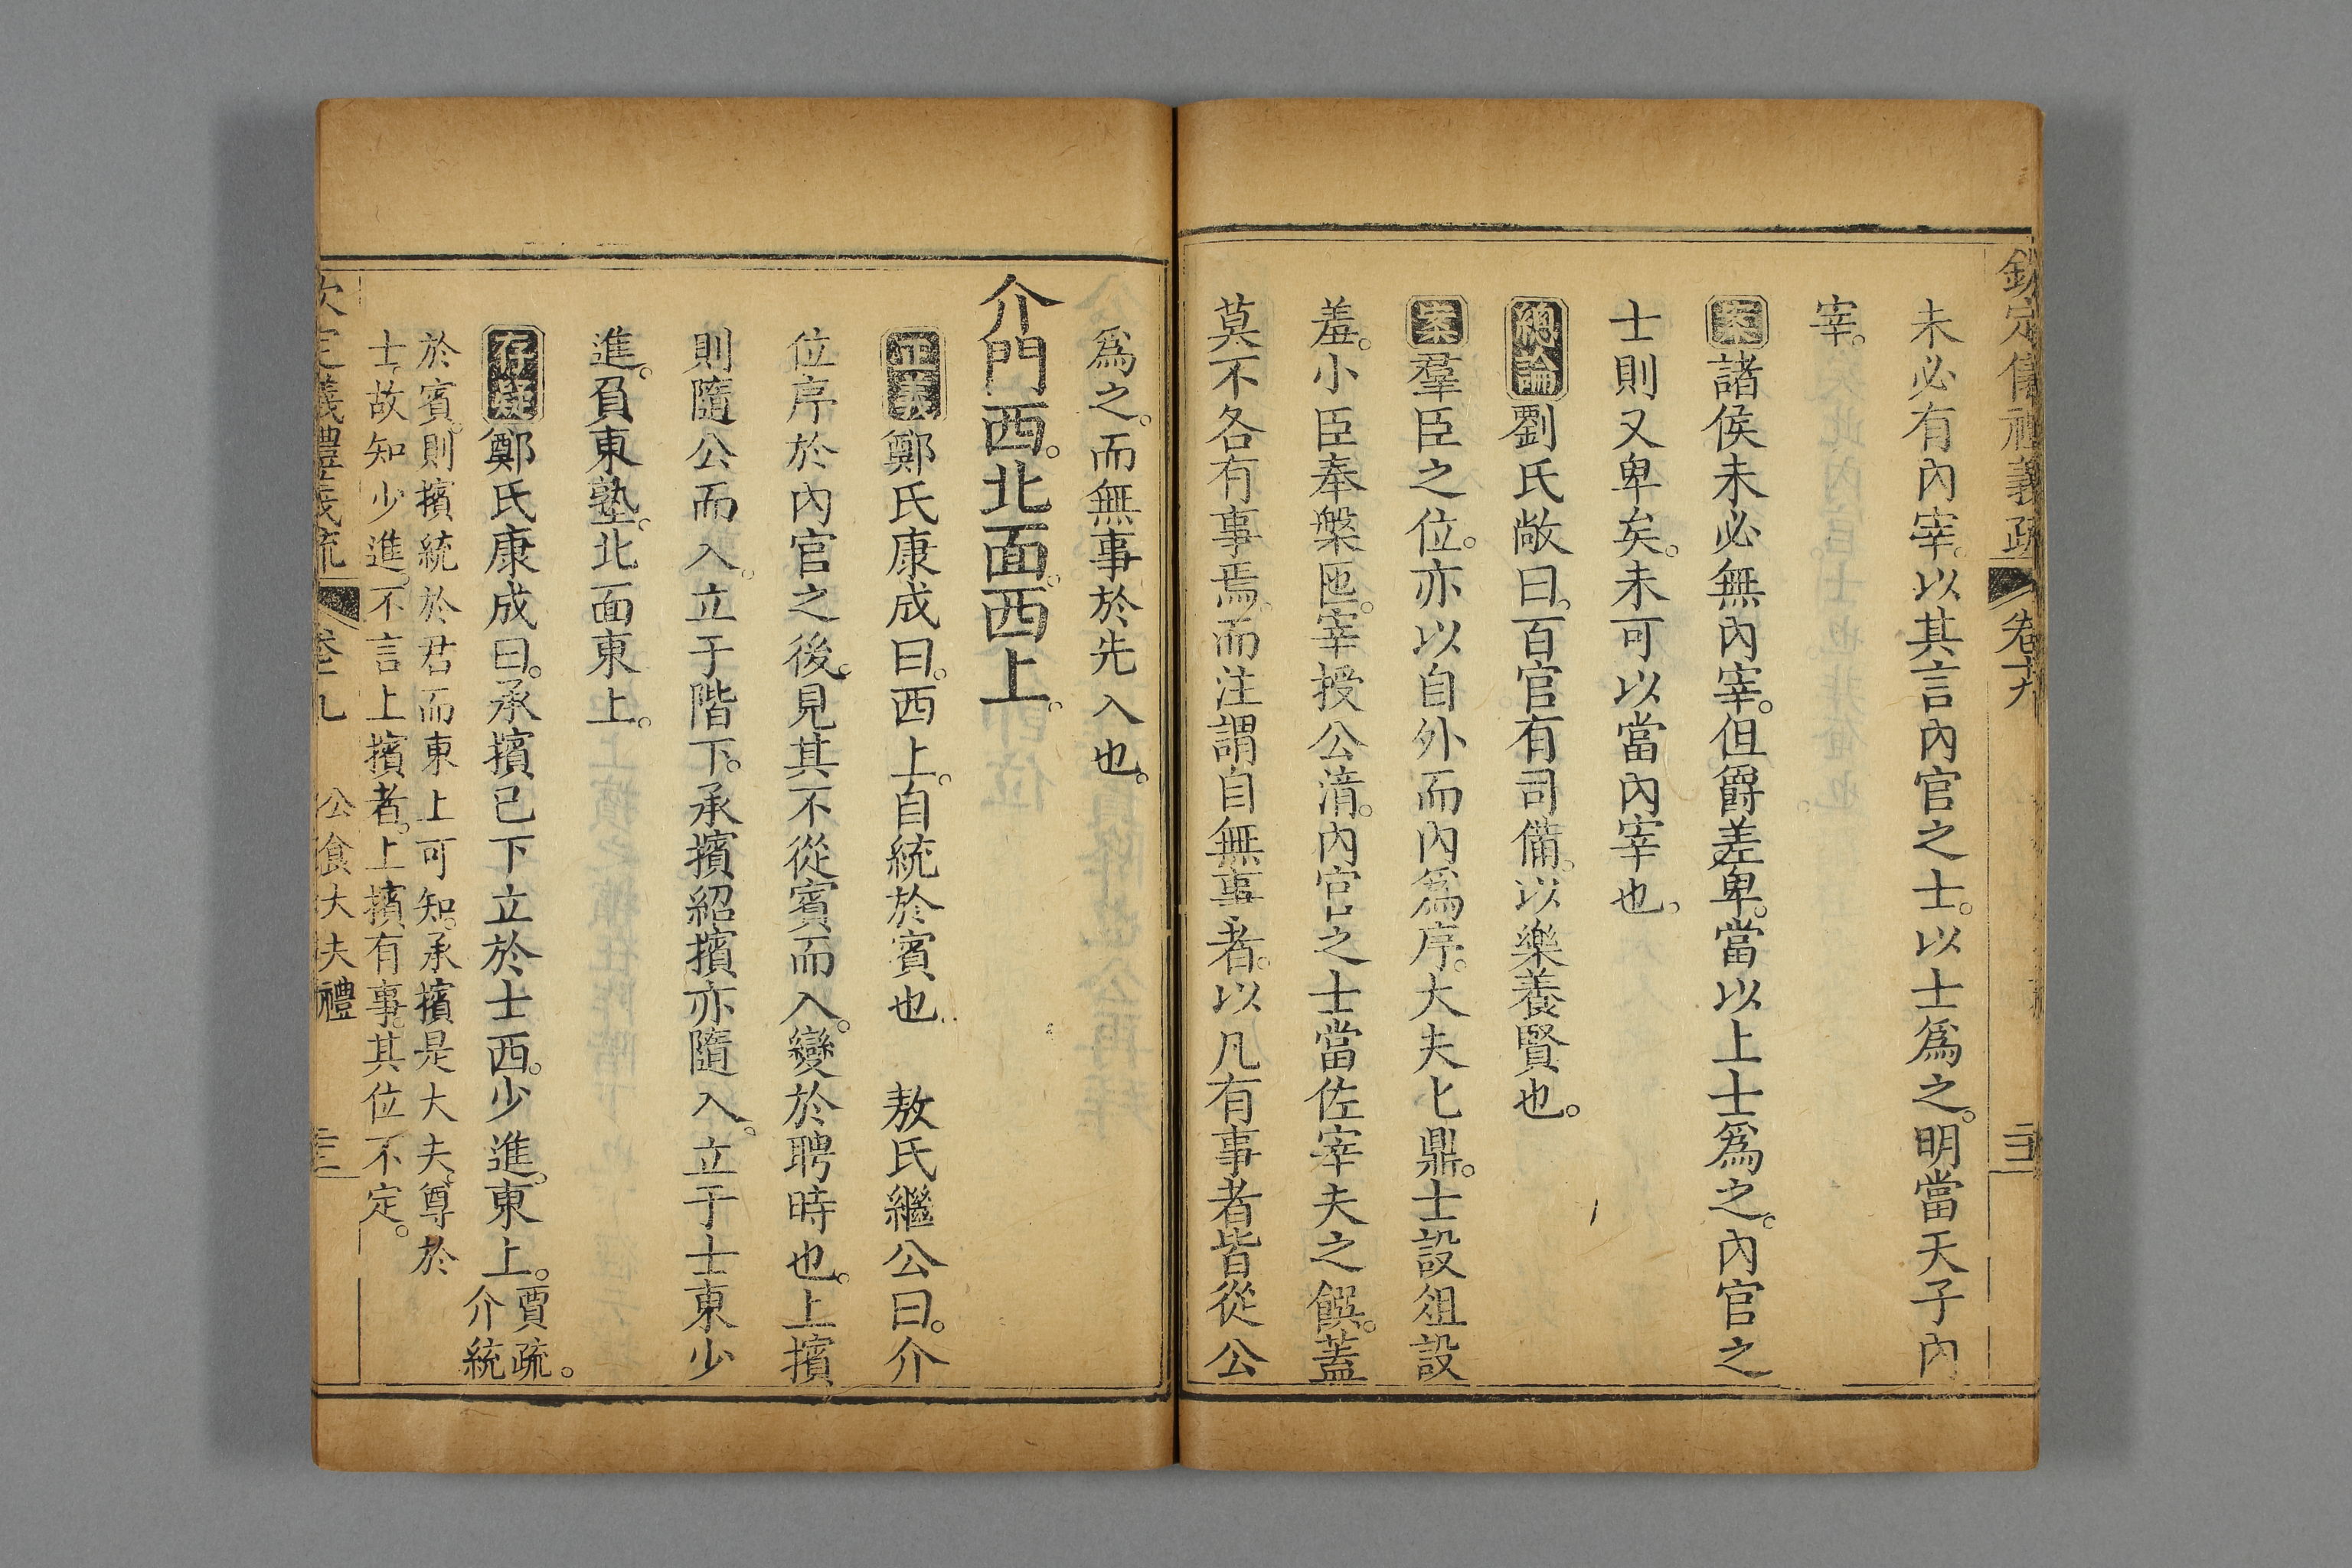 欽定儀禮義疏 卷十九
未必有內宰。以其言內官之士。以士爲之。明當天子內
宰。
案諸侯未必無內宰。但爵差卑。當以上士爲之。內官之
士則又卑矣。未可以當內宰也。
總論劉氏敞曰。百官有司備。以樂養賢也。
案羣臣之位。亦以自外而內爲序。大夫匕鼎。士設俎。設
羞。小臣奉槃匜。宰授公湆。內官之士當佐宰夫之饌。蓋
莫不各有事焉。而注謂自無事者。以凡有事者皆從公
爲之。而無事於先入也。
介門西。北面。西上。
正義鄭氏康成曰。西上。自統於賓也 敖氏繼公曰。介
位序於內官之後。見其不從賓而入。變於聘時也。上擯
則隨公而入。立于階下。承擯紹擯亦隨入。立于士東少
進。負東塾。北面東上。
存疑鄭氏康成曰。承擯已下立於士西。少進。東上。賈疏。介統
於賓。則擯統於君而東上可知。承擯是大夫。尊於
士。故知少進。不言上擯者。上擯有事。其位不定。
欽定儀禮義疏 卷十九 公食大夫禮